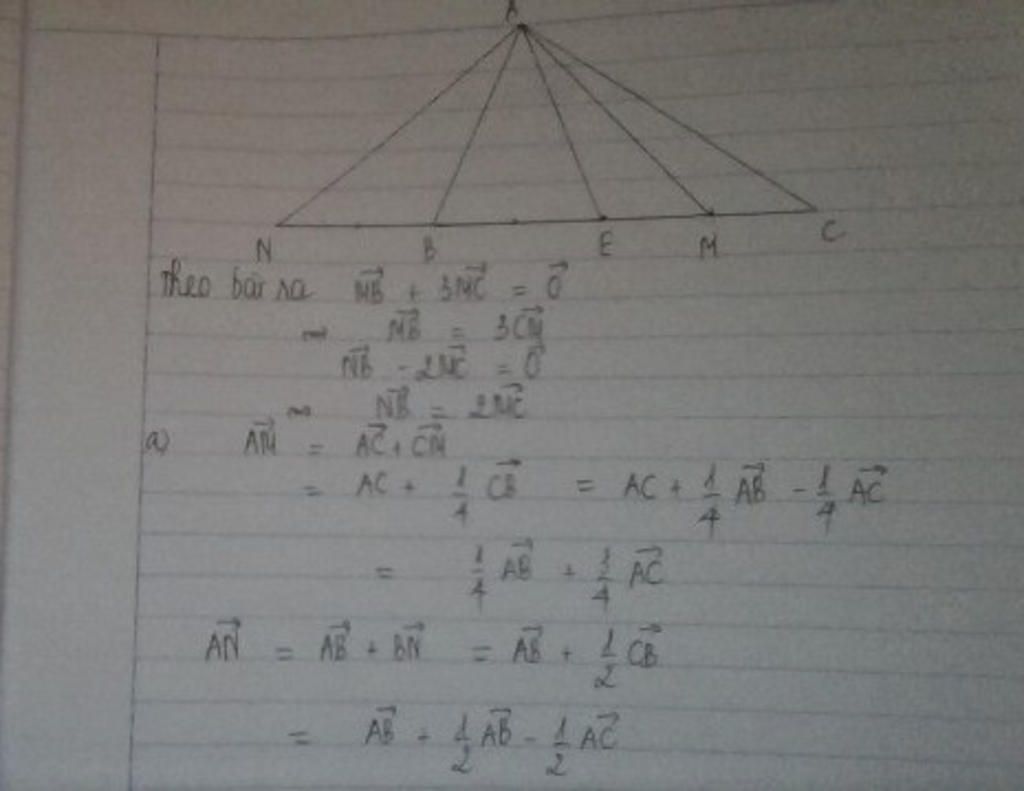 A
N B E M C
Theo bài ra $\vec{MB} + 3\vec{MC} = \vec{0}$
$\vec{MB} = 3\vec{CM}$
$\vec{NB} - 2\vec{NC} = \vec{0}$
$\vec{NB} = 2\vec{NC}$
a) $\vec{AM} = \vec{AC} + \vec{CM}$
$= AC + \frac{1}{4}\vec{CB} = AC + \frac{1}{4}\vec{AB} - \frac{1}{4}\vec{AC}$
$= \frac{1}{4}\vec{AB} + \frac{3}{4}\vec{AC}$
$\vec{AN} = \vec{AB} + \vec{BN} = \vec{AB} + \frac{1}{2}\vec{CB}$
$= \vec{AB} + \frac{1}{2}\vec{AB} - \frac{1}{2}\vec{AC}$